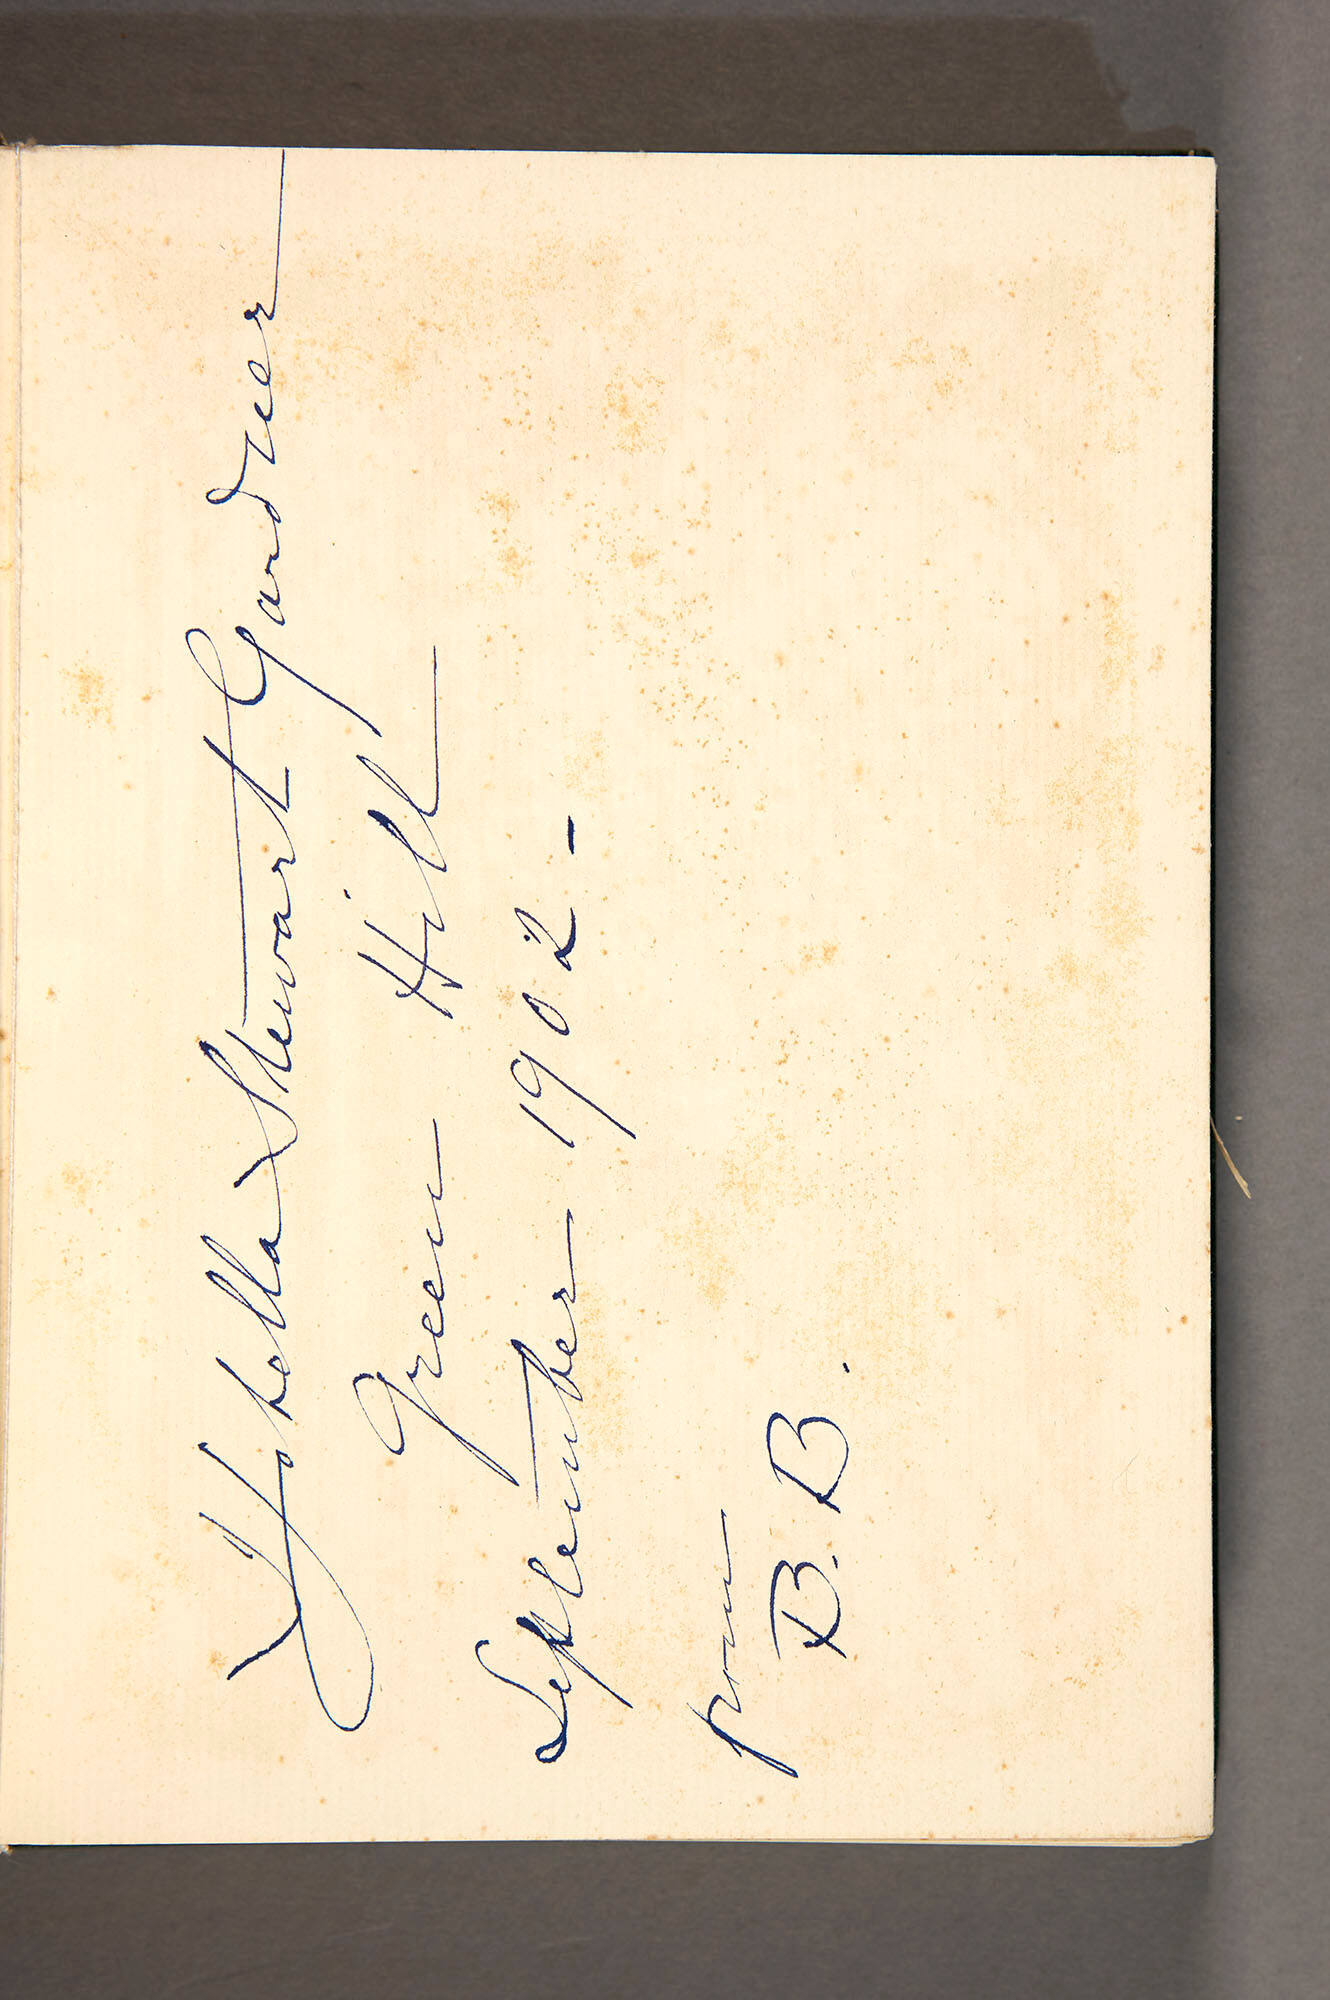 Isabella Stewart Gardner
Green Hill
September 1902 -
from
B. B.